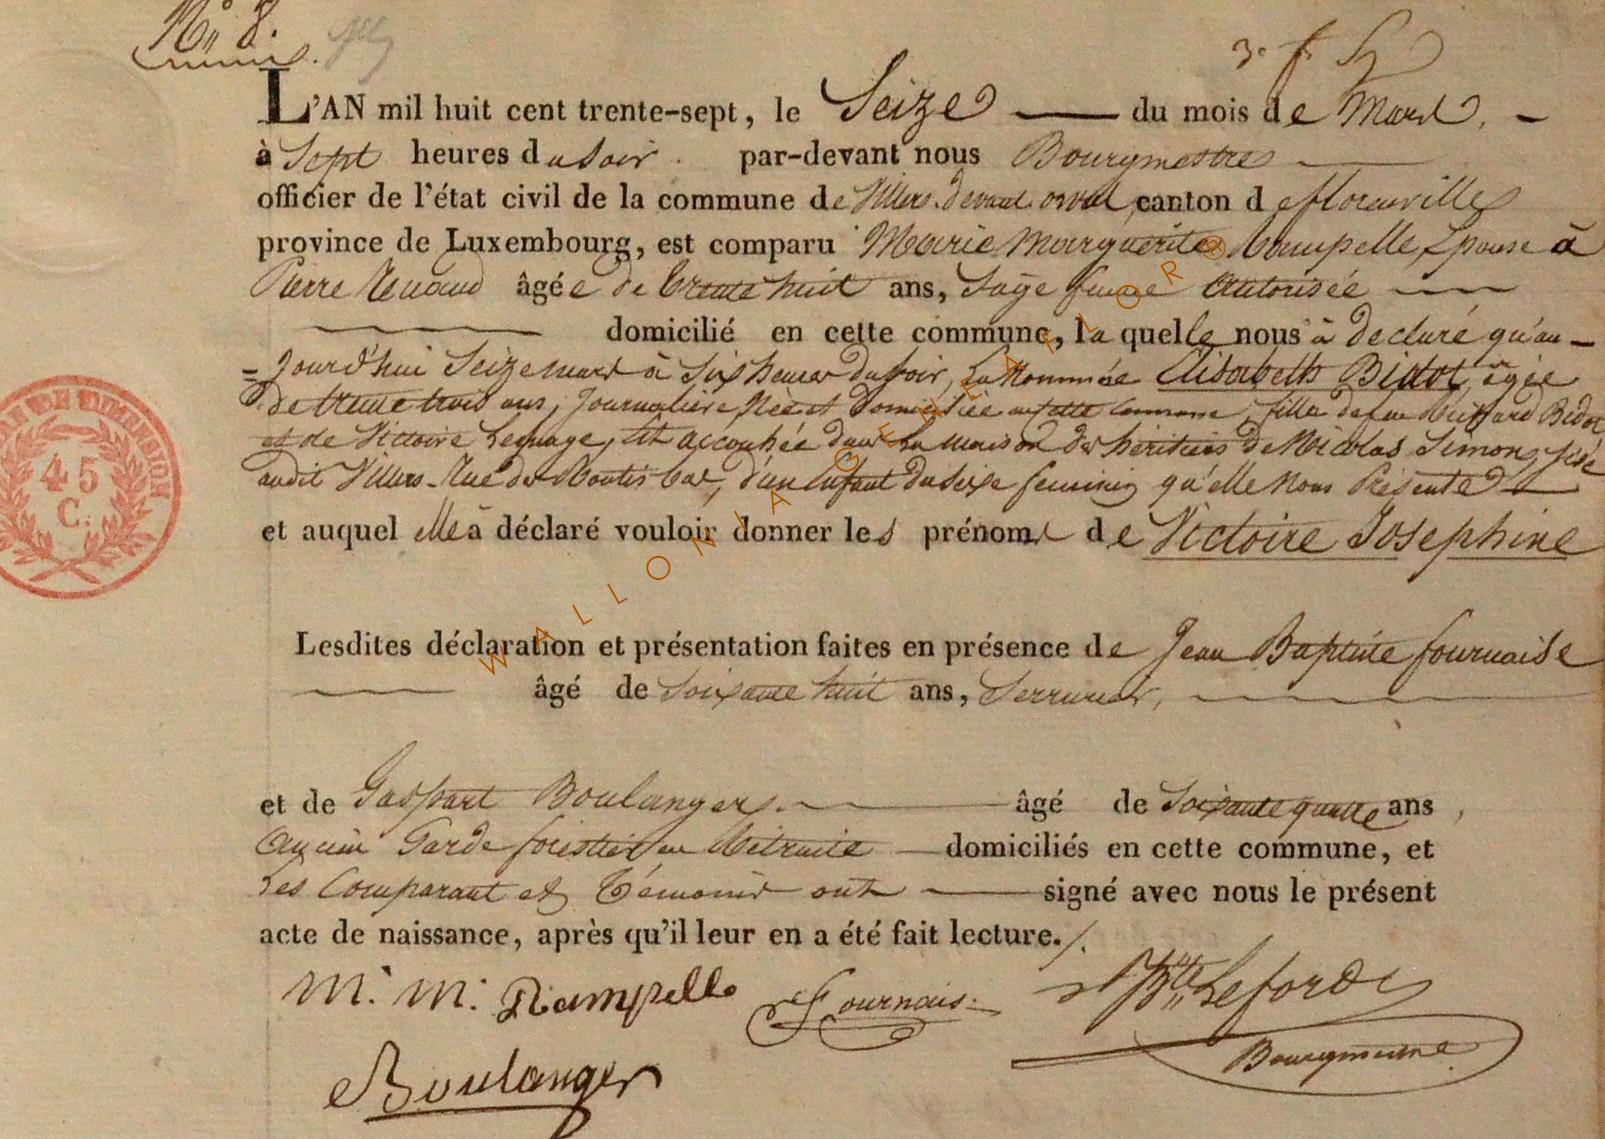 N° 8.
L'AN mil huit cent trente-sept, le Seize du mois de Mars,
à Sept heures du Soir. par-devant nous Bourgmestre
officier de l'état civil de la commune de Villers devant orval canton de florenville
province de Luxembourg, est comparu Marie Marguerite Rampelle, Epouse à
Pierre Renaud âgée de trente huit ans, Sage femme Autorisée
domicilié en cette commune, laquelle nous à déclaré qu'au-
=jourd'hui Seize mars à Six heures du soir, la Nommée Elisabeth Bidot, agée
de trente trois ans, Journalière, Née et Domiciliée en cette commune, fille de feu Bidot
et de Victoire Lepage, est accouchée dans la maison des héritiers de Nicolas Simon, sise
audit Villers, Rue du bas, d'un Enfant du sexe feminin qu'elle nous Présente
et auquel elle à déclaré vouloir donner les prénoms de Victoire Josephine
Lesdites déclaration et présentation faites en présence de Jean Baptiste fournaise
âgé de Soixante huit ans, Serrurier,
et de Gaspart Boulanger. âgé de Soixante quatre ans,
Ancien Garde forestier en Retraite domiciliés en cette commune, et
les Comparant et Témoins ont signé avec nous le présent
acte de naissance, après qu'il leur en a été fait lecture./.
M. M. Rampelle Fournais. Jn Bte Leforde
Boulanger Bourgmestre
45
C.
WALLONIA GENEAFLOR®